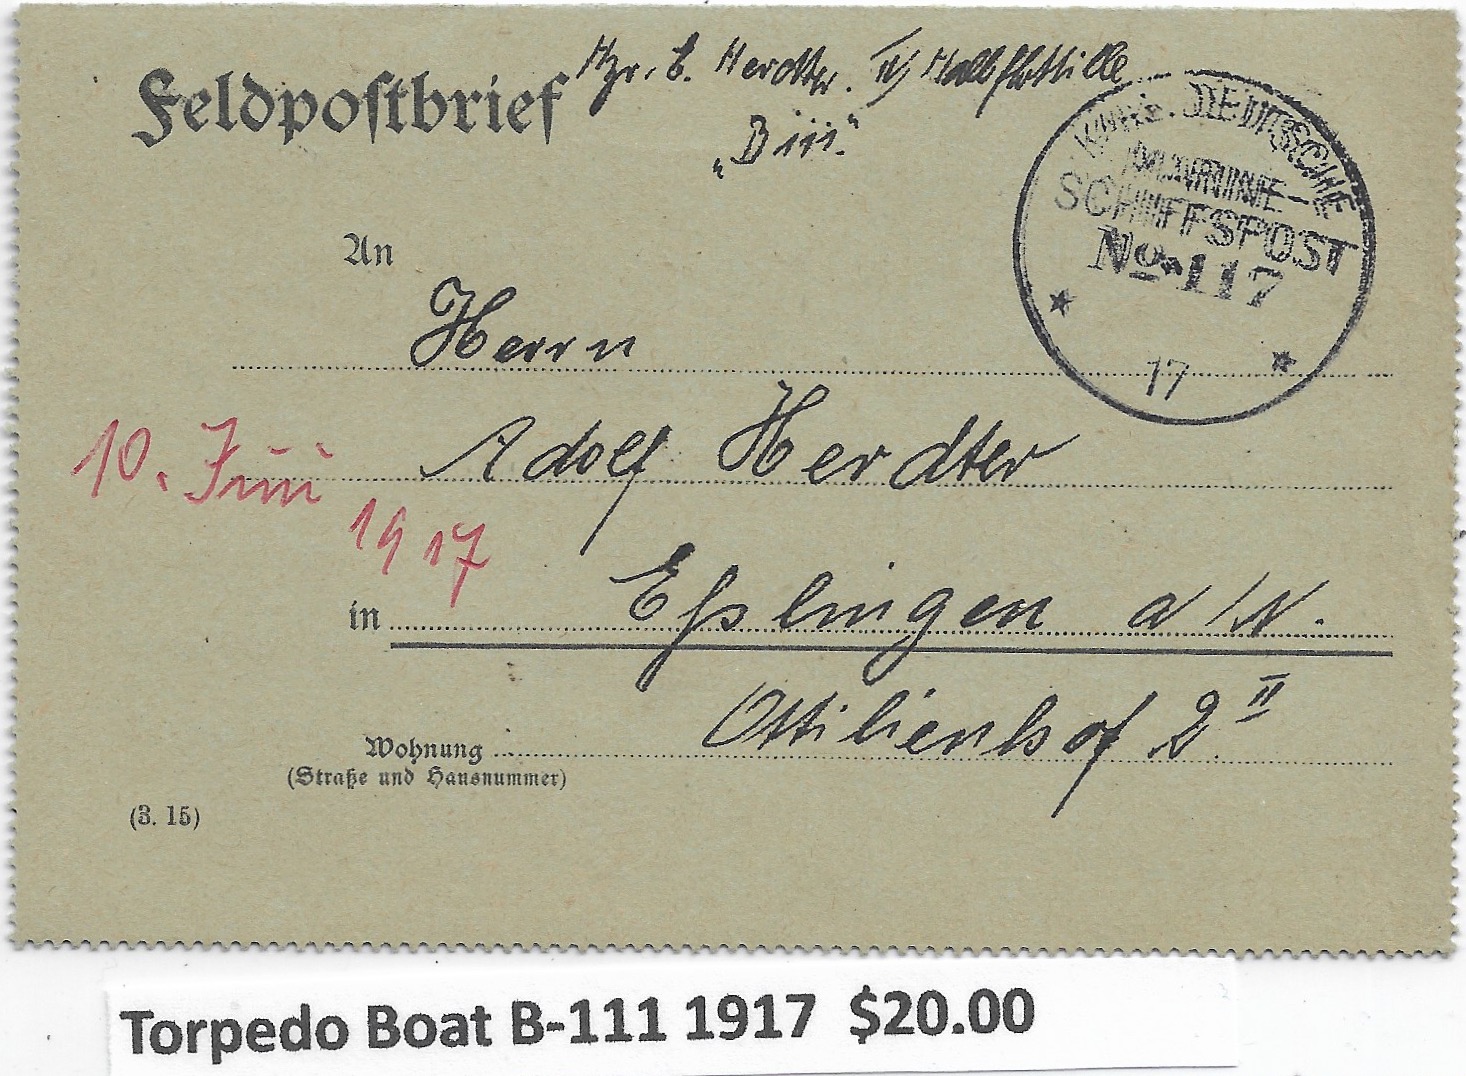 Feldpostbrief
E. Herdter. II/ Halbflottille
„B 111.“
KAIS. DEUTSCHE
MARINE-
SCHIFFSPOST
No. 117
17
An
Herrn
Adolf Herdter
10. Juni
1917
in Eßlingen a/N.
Ottilienhof 2 II
Wohnung
(Straße und Hausnummer)
(3. 15)
Torpedo Boat B-111 1917 $20.00